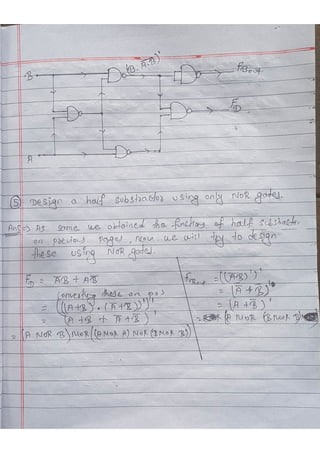 (B. A̅.B̅)'
B
F_Bout
F_D
A
⑤ Design a half substractor using only NOR gates.
Ans⇒ As some we obtained the functions of half substractor
on previous page, now we will try to design
these using NOR gates.
F_D = A̅B + AB̅
converting these on pos
= ((A+B̅)' + (A̅+B)')''
= (A NOR B̅) NOR ((A NOR A) NOR (B NOR B))
F_Bout = ((A̅B)')'
= (A + B̅)'
= (A NOR (B NOR B))